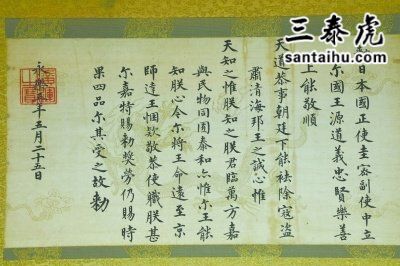 三泰虎
santaihu.com
日本國正使圭密副使中立
尔國王源道義忠賢樂善
上能敬順
天道恭事朝廷下能祛除寇盜
肅清海邦王之誠心惟
天知之惟朕知之朕君臨萬方嘉
與民物同囿泰和亦惟尔王能
知朕心今尔將王命遠至京
師達王悃欵敬恭使職朕甚
尔嘉特賜勅奬勞仍賜時
果四品尔其受之故勅
永樂五年五月二十五日